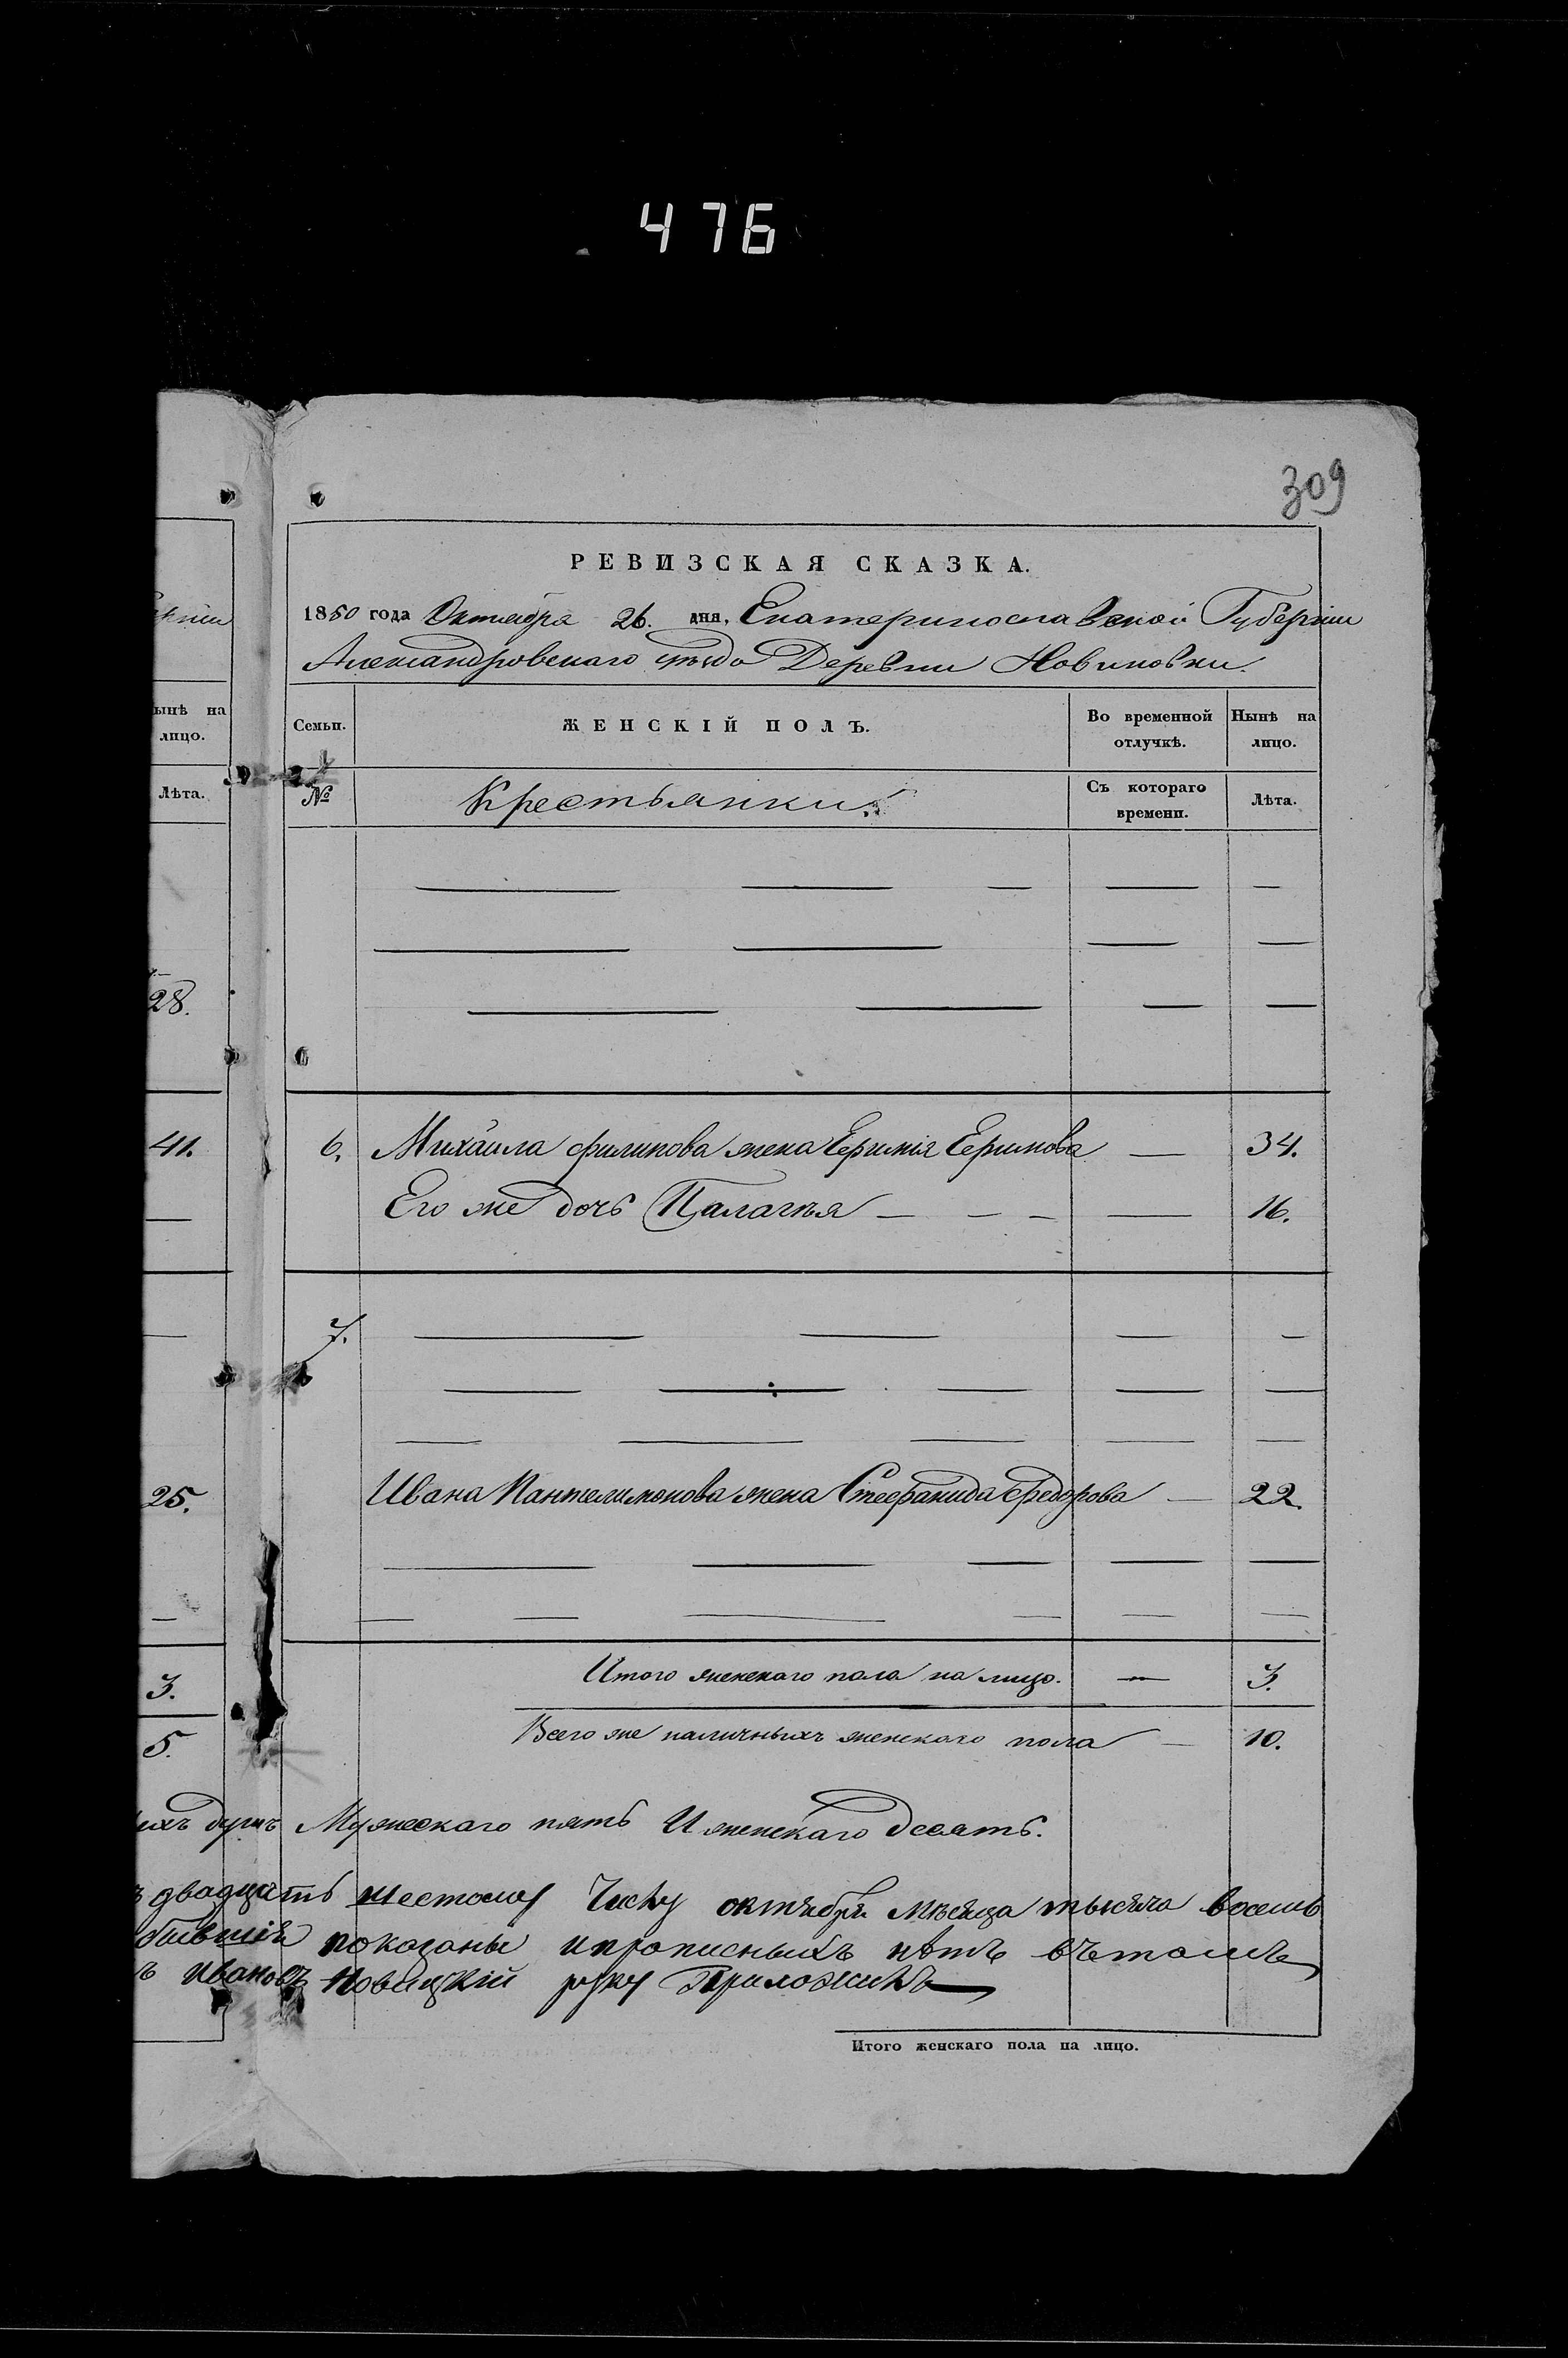 476
309
РЕВИЗСКАЯ СКАЗКА.
1850 года Октября 26. дня, Екатеринославской Губерніи
Александровскаго уѣзда Деревни Новиковки.
ынѣ на лицо.
Лѣта.
Семьи.
№
ЖЕНСКІЙ ПОЛЪ.
Крестьянки:
Во временной отлучкѣ.
Съ котораго времени.
Нынѣ на лицо.
Лѣта.
28.
41. 6. Михаила Филипова жена Ефимія Ефимова — 34.
— Его же дочь Палагѣя — — — — 16.
7.
25. Ивана Пантелимонова жена Стефанида Федорова — 22.
3. Итого женскаго пола на лицо. — 3.
5. Всего же наличныхъ женскаго пола — 10.
ихъ душъ Мужескаго пять И женскаго десять.
двадцать шестому Числу октября мѣсяца тысяча восемь
бывшія показаны и прописныхъ нѣтъ вътомъ
ъ Ивановъ Новицкій руку Приложилъ
Итого женскаго пола на лицо.